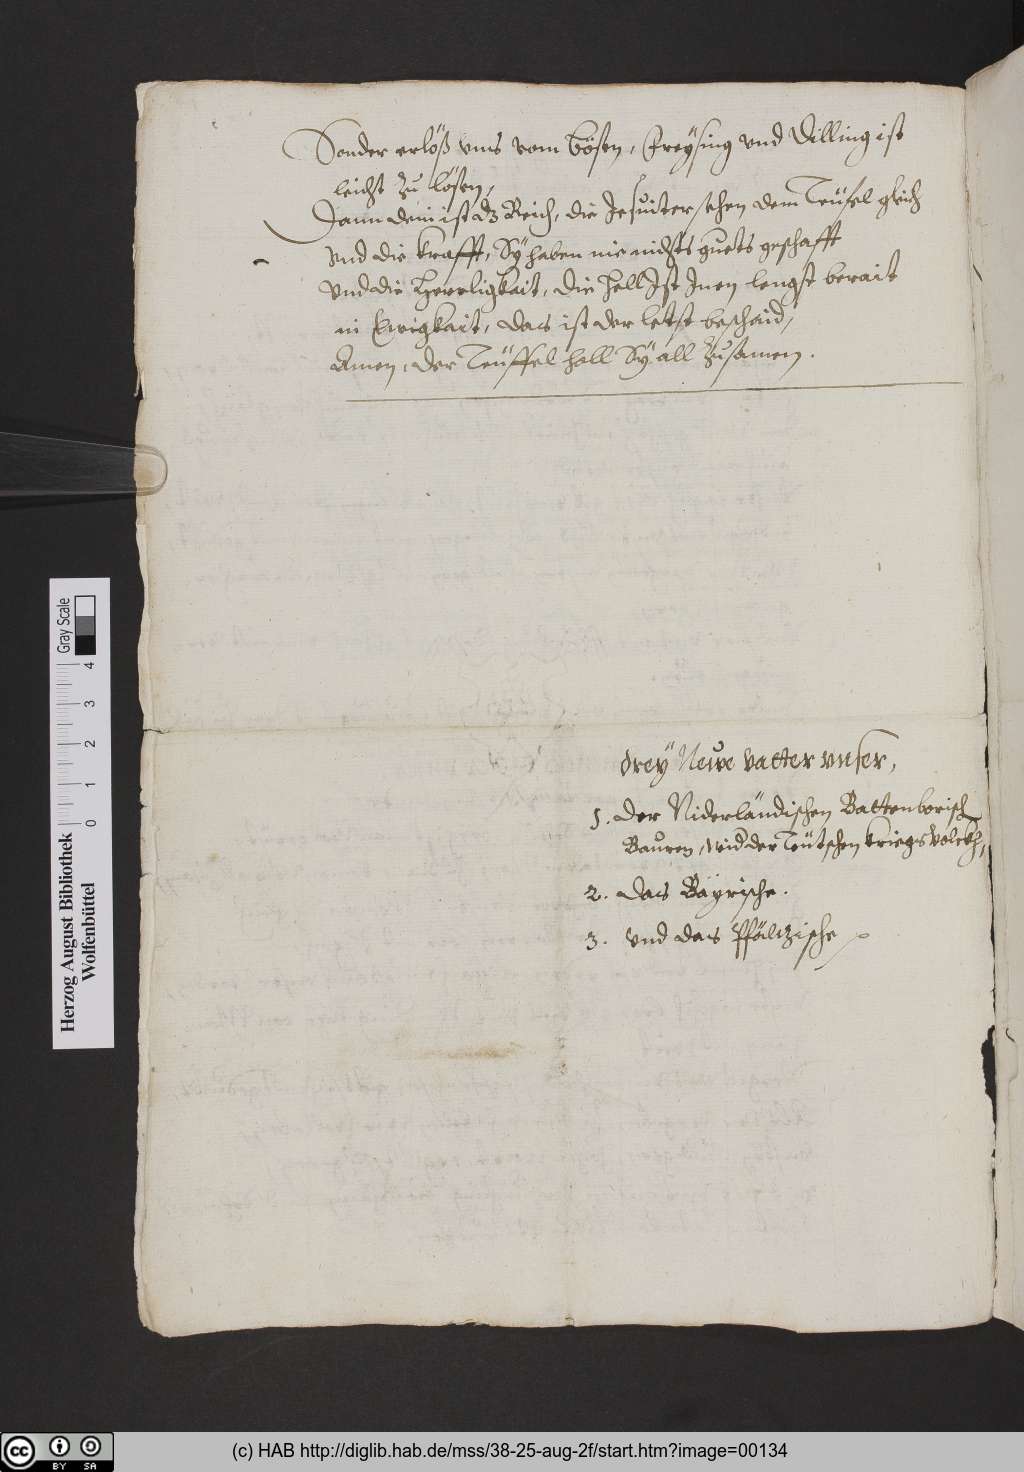 Sonder erlöß vnns vom bösen, Freysing vnd Dilling ist
leicht zu lösen,
Dann dein ist dz Reich, die Jesuiter sehen dem Teüfel gleich
vnd die krafft, Sÿ haben nie nichts guets geschafft
vnd die Herrligkait, die Hell Ist Inen lengst berait
in Ewigkait, das ist der letst beschaid,
Amen, der Teüffel hall Sÿ all zusamen.
dreÿ Newe vatter vnser,
1. der Niderländischen Battenborisch
Bauren, vnd der Teütschen kriegs volckh,
2. das Baÿrische.
3. vnd das Pfältzische
Herzog August Bibliothek
Wolfenbüttel
0 1 2 3 4
Gray Scale
(c) HAB http://diglib.hab.de/mss/38-25-aug-2f/start.htm?image=00134
cc BY SA